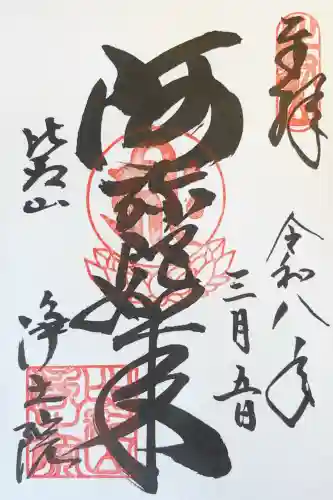 奉拝
令和八年
三月五日
阿弥陀如来
比叡山
浄土院